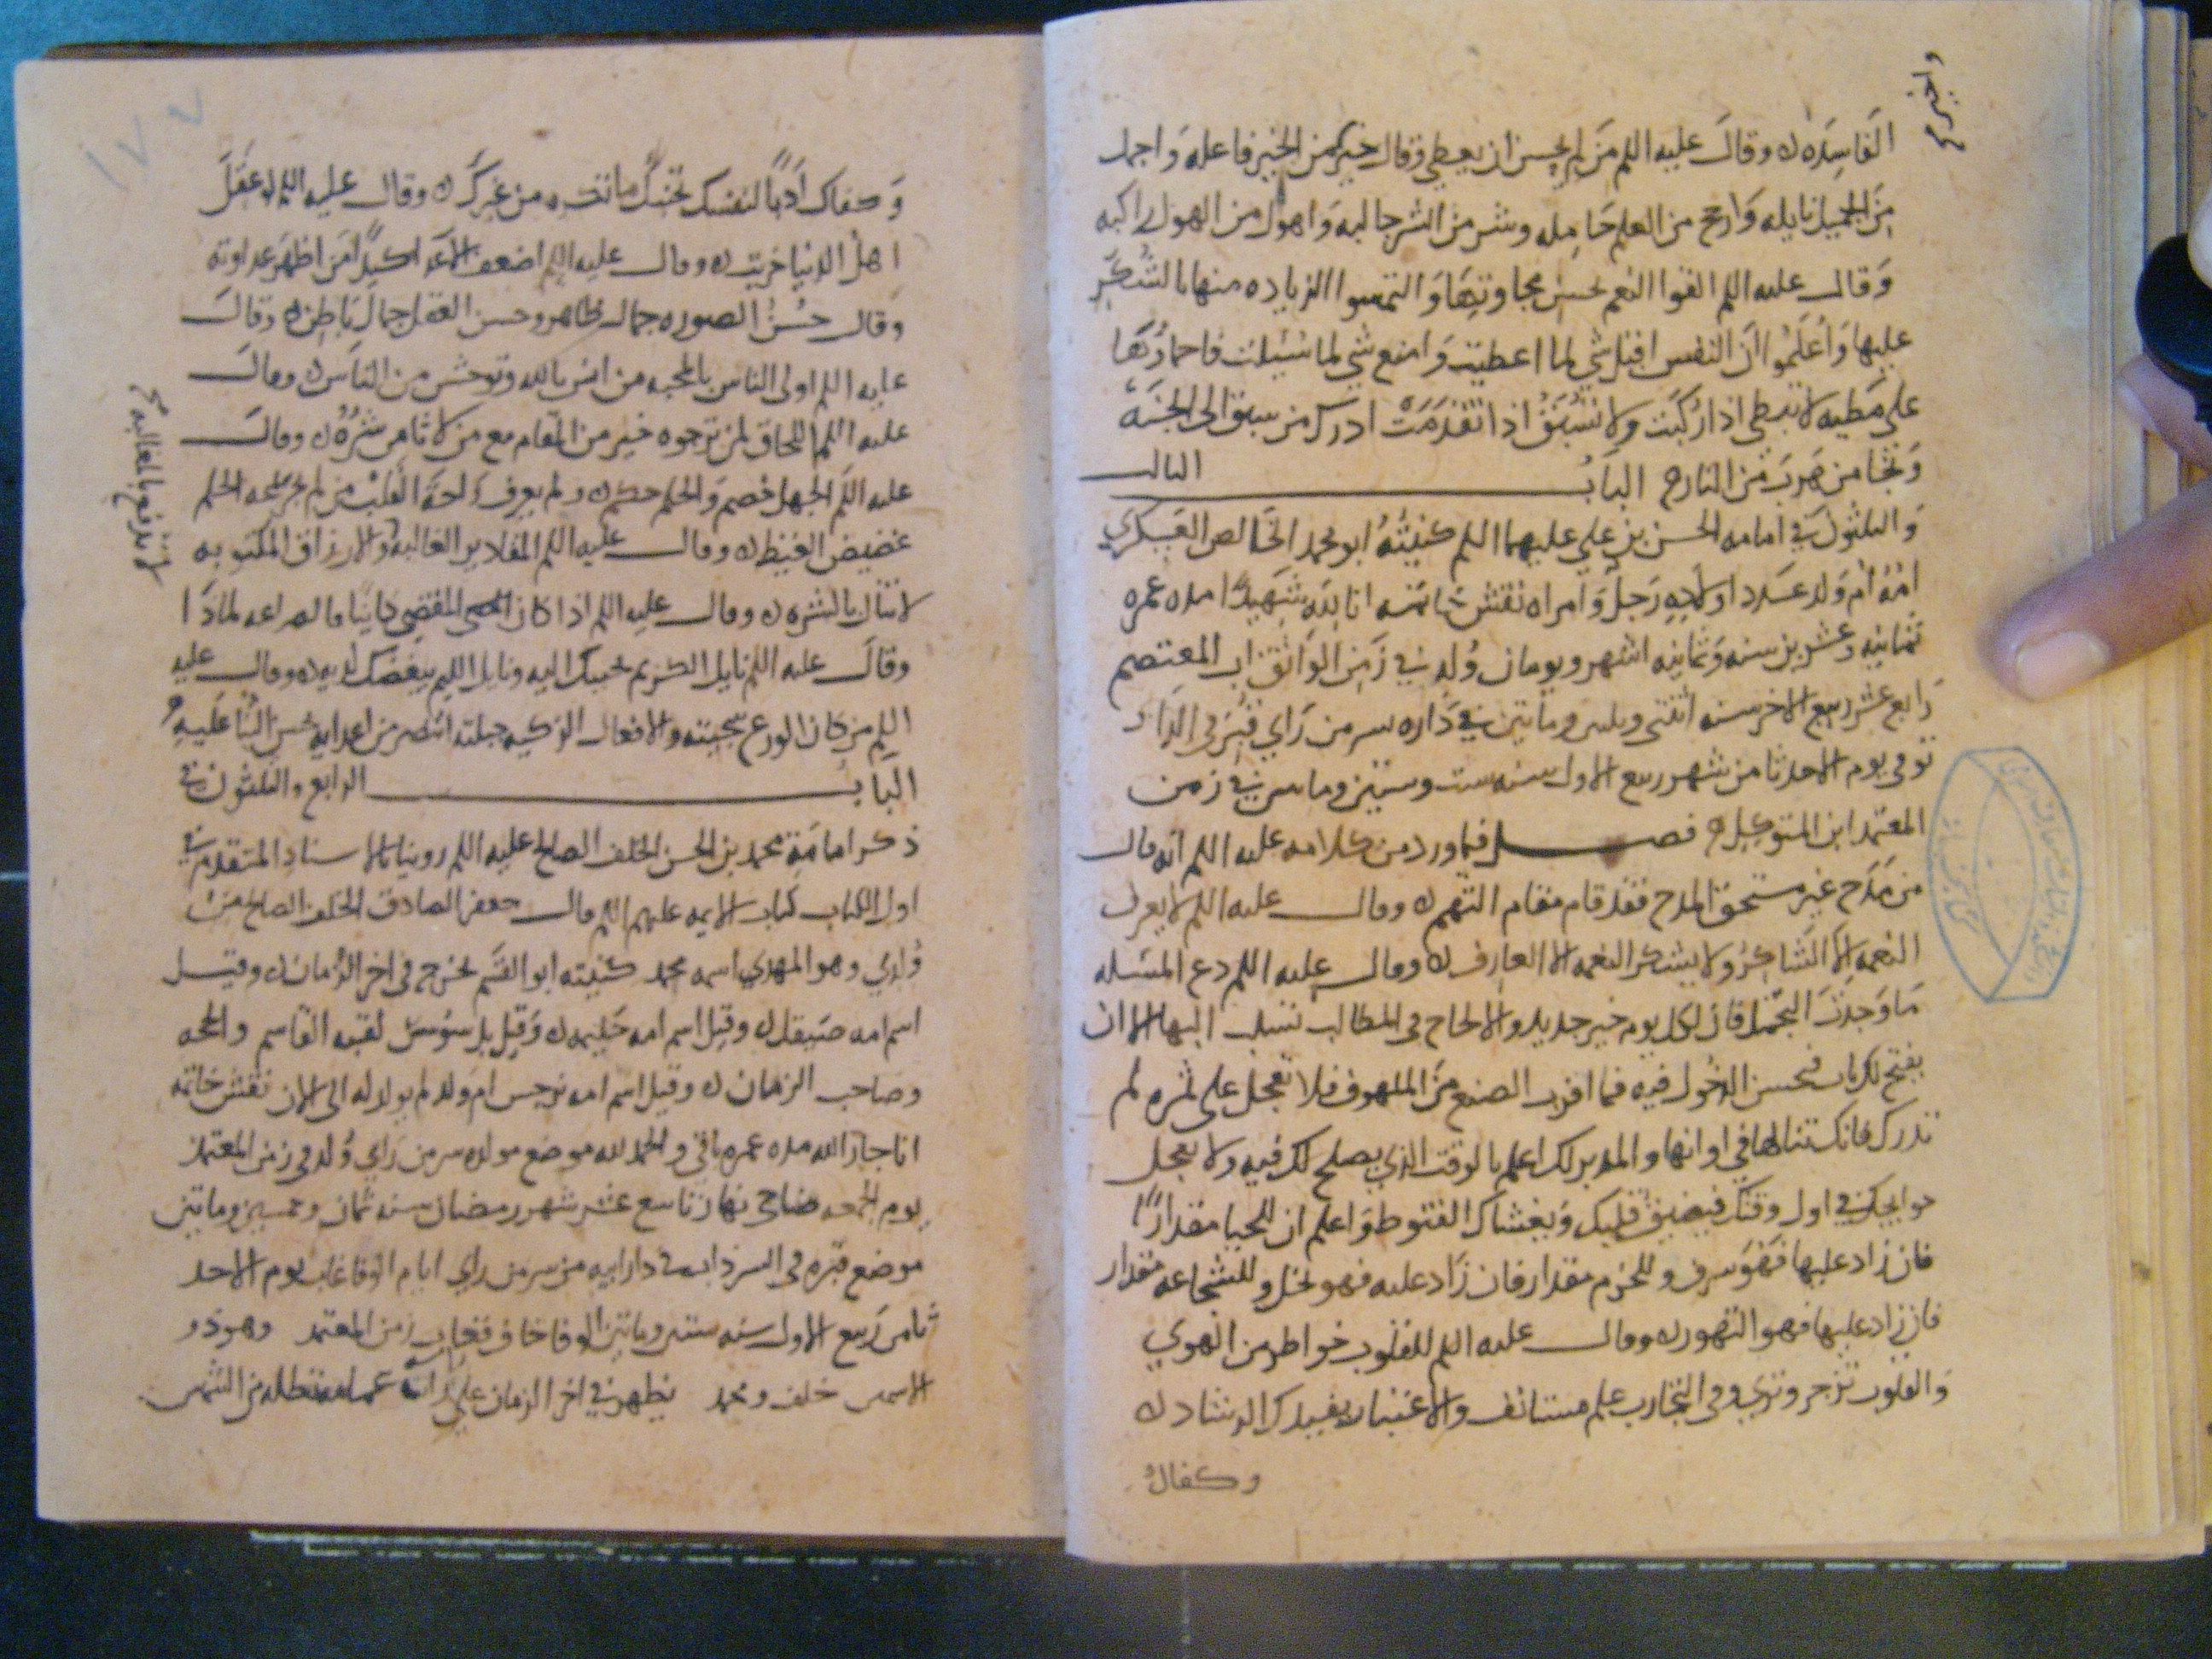 الفاسده ن وقال عليه اللم من لم يحسن ان يعطي وقال خير من الخير فاعله واجمل
من الجميل نايله وارجح من العلم حامله وشر من الشر جالبه واهول من الهول راكبه
وقال عليه اللم القوا النعم بحسن مجاورتها والتمسوا الزياده منها بالشكر
عليها واعلموا ان النفس اقبل شي لما اعطيت وامنع شي لما سئيلت فاحملوها
على مطيه لا تبطي اذا ركبت ولا تسبق اذا تقدمت ادرك من سبق الى الجنة
ونجا من هرب من النار ح الباب الثالث
والثلثون في امامه الحسن بن علي عليهما اللم كنيته ابو محمد الخالص العسكري
امه ام ولد عدد اولاده رجل وامراه نقش خاتمه انا لله شهيد امده عمره
ثمانيه وعشرين سنه وثمانيه اشهر ويومان ولد في زمن الواثق ابن المعتصم
رابع عشر ربيع الاخر سنه اثنتى وثلثين وماتين في داره سر من راي قبره في الدار
توفي يوم الاحد ثامن شهر ربيع الاول سنه ست وستين وماتين في زمن
المعتمد ابن المتوكل ح فصل فيما ورد من كلامه عليه اللم انه قال
من مدح غير مستحق المدح فقد قام مقام التهم ن وقال عليه اللم لا يعرف
النعمه الا الشاكر ولا يشكر النعمه الا العارف ن وقال عليه اللم دع المسله
ما وجدت التجمل فان لكل يوم خير جديد والالحاح في المطالب تسلب البها الا ان
يفتح لك باب فتحسن الدخول فيه فما اقرب الصنع من الملهوف فلا تعجل على ثمره لم
تدرك فانك تنالها في اوانها والمدبر لك اعلم بالوقت الذي يصلح لك فيه ولا تعجل
حوايجك في اول وقتك فيضيق قلبك ويغشاك القنوط واعلم ان للحيا مقدارا
فان زاد عليها فهو سرف وللحزم مقدار فان زاد عليه فهو بخل وللشجاعه مقدار
فان زاد عليها فهو التهور ن وقال عليه اللم للقلوب خواطر من الهوي
والقلوب تزجر وتزي وفي التجارب علم مستانف والاعتبار يفيدك الرشاد ن
وكفاك
وكفاك ادبا لنفسك تجنبك ما تكره من غيرك ن وقال عليه اللم لو عقل
اهل الدنيا خربت ن وقال عليه اللم اضعف الاعدا كيدا من اظهر عداوته
وقال حسن الصوره جمال ظاهر وحسن العقل جمال باطن ن وقال
عليه اللم اولى الناس بالمحبه من انس بالله وتوحش من الناس ن وقال
عليه اللم اللحاق لمن ترجوه خير من المقام مع من لا تامن شره ن وقال
عليه اللم الجهل خصم والحلم حكم ن ولم يعرف راحة القلب من لم يجرعه الحلم
غضيض الغيظ ن وقال عليه اللم المقادير الغالبه والارزاق المكتوبه
لا تنال بالشره ن وقال عليه اللم اذا كان المقضي كاينا فالضراعه لماذا
وقال عليه اللم نايل الكريم يحببك اليه ونايل الليم يبغضك لديه ن وقال عليه
اللم من كان الورع سجيته والافعال الزكيه جبلته انتصر من اعدايه بحسن الثنا عليه
الباب الرابع والثلثون في
ذكر امامة محمد بن الحسن الخلف الصالح عليه اللم روينا بالاسناد المتقدم في
اول الكتاب كتاب الايمه عليهم اللم قال جعفر الصادق الخلف الصالح من
ولدي وهو المهدي اسمه محمد كنيته ابو القسم يخرج في اخر الزمان ن وقيل
اسم امه صيقل ن وقيل اسم امه حليمه ن وقيل بل سوسن لقبه القاسم والحجه
وصاحب الزمان ن وقيل اسم امه نرجس ام ولد لم يولد له الى الان نقش خاتمه
انا جار الله مده عمره باقي والحمد لله موضع مولده سر من راي ولد في زمن المعتمد
يوم الجمعه ضاحي نهار تاسع عشر شهر رمضان سنه ثمان وخمسين وماتين
موضع قبره في السرداب في دار ابيه من سر من راي ايام الوفا غاب يوم الاحد
ثامن ربيع الاول سنه ستين وماتين الوفا خاف فغاب زمن المعتمد وهو ذو
الاسمين خلف ومحمد يظهر في اخر الزمان على راسه غمامه تظله من الشمس